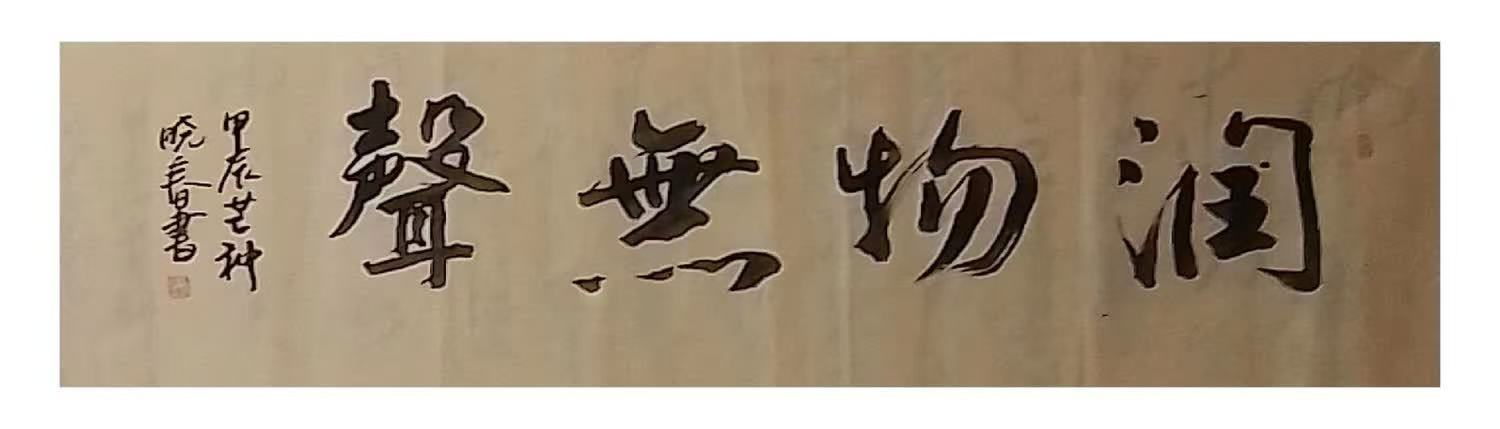 润物無聲
甲辰芒种
晓春書